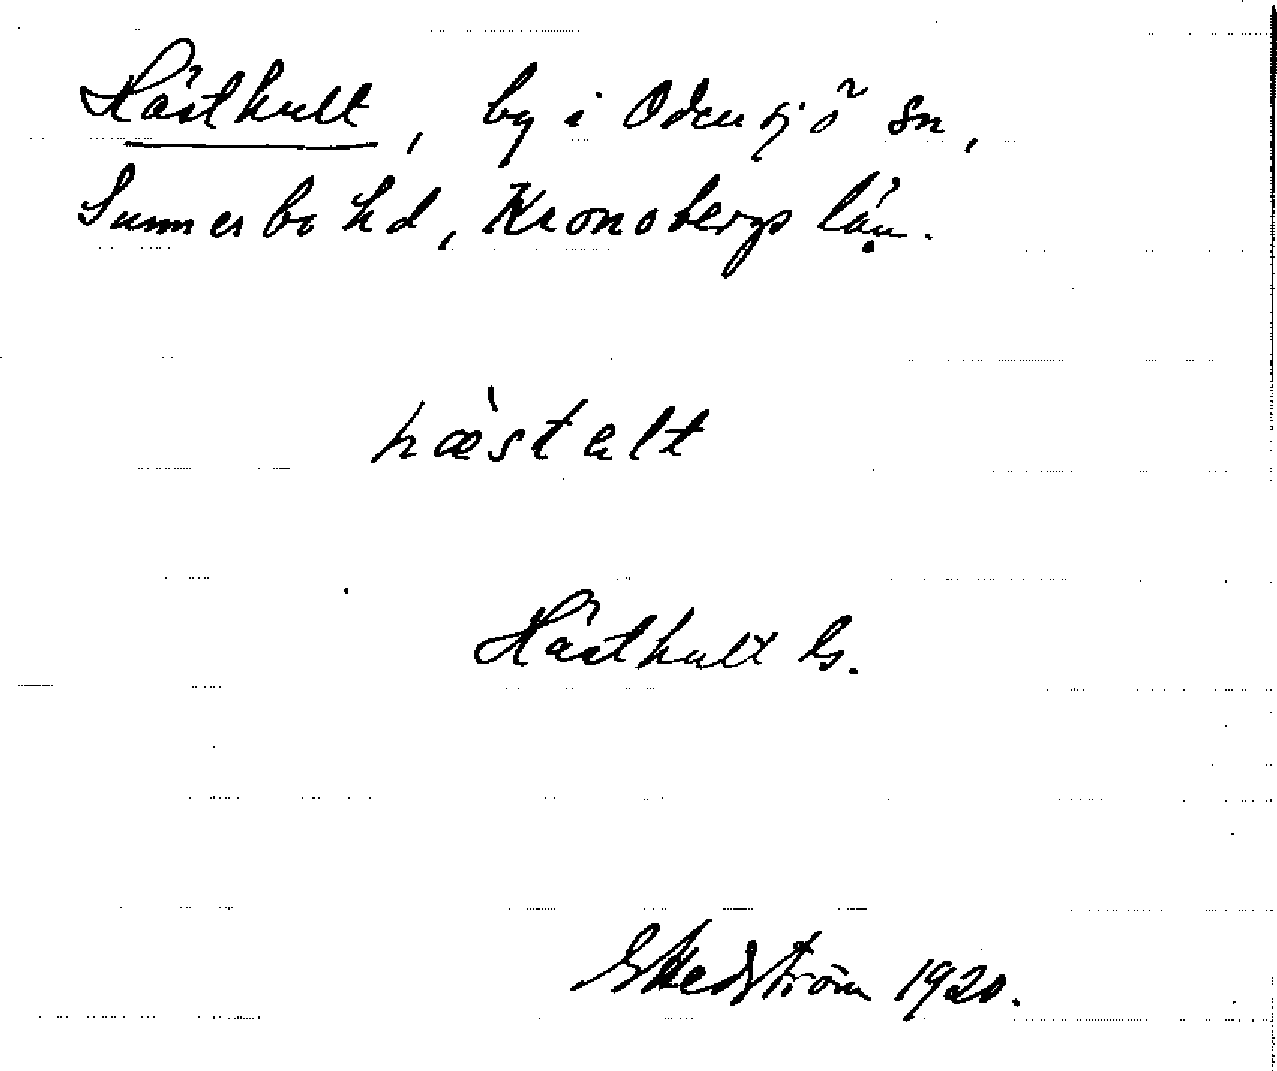 Hästhult, by i Odensjö sn,
Sunnerbo hd, Kronobergs län.
hæ̀stelt
Hästhult Gs.
G Hedström 1920.